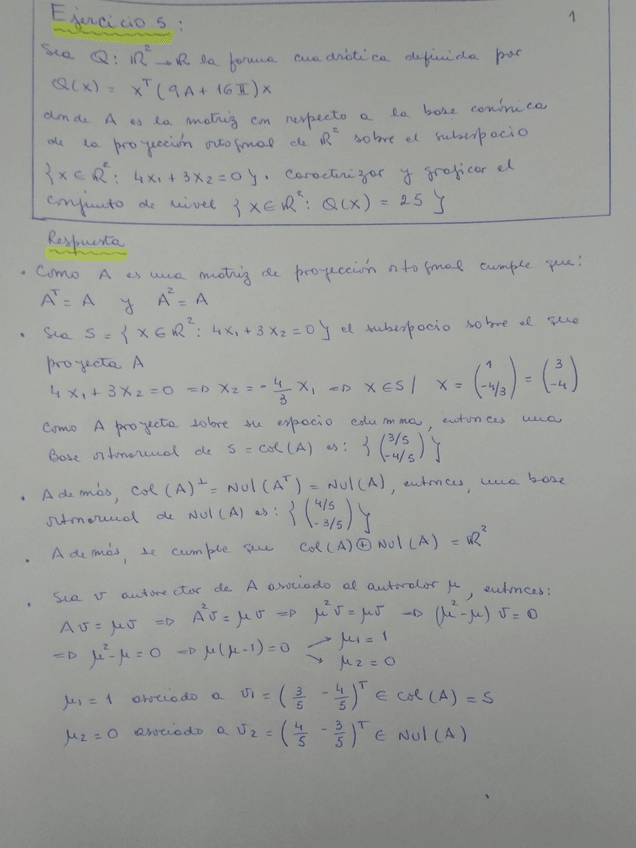 Ejercicio 5 : 1
Sea Q: ℝ² → ℝ la forma cuadrática definida por
Q(x) = xᵀ(9A + 16𝕀)x
donde A es la matriz con respecto a la base canónica
de la proyección ortogonal de ℝ² sobre el subespacio
{x ∈ ℝ²: 4x₁ + 3x₂ = 0}. Caracterizar y graficar el
conjunto de nivel {x ∈ ℝ²: Q(x) = 25}
Respuesta
• Como A es una matriz de proyección ortogonal cumple que:
Aᵀ = A y A² = A
• Sea S = {x ∈ ℝ²: 4x₁ + 3x₂ = 0} el subespacio sobre el que
proyecta A
4x₁ + 3x₂ = 0 ⇒ x₂ = -4/3 x₁ ⇒ x ∈ S / x = (1 -4/3) = (3 -4)
Como A proyecta sobre su espacio columna, entonces una
Base ortonormal de S = col(A) es: {(3/5 -4/5)}
• Además, Col(A)⊥ = Nul(Aᵀ) = Nul(A), entonces, una base
ortonormal de Nul(A) es: {(4/5 -3/5)}
• Además, se cumple que Col(A) ⊕ Nul(A) = ℝ²
• Sea v autovector de A asociado al autovalor μ, entonces:
Av = μv ⇒ A²v = μv ⇒ μ²v = μv ⇒ (μ² - μ) v = 0
⇒ μ² - μ = 0 ⇒ μ(μ-1) = 0 → μ₁ = 1
→ μ₂ = 0
μ₁ = 1 asociado a v₁ = (3/5 -4/5)ᵀ ∈ Col(A) = S
μ₂ = 0 asociado a v₂ = (4/5 -3/5)ᵀ ∈ Nul(A)